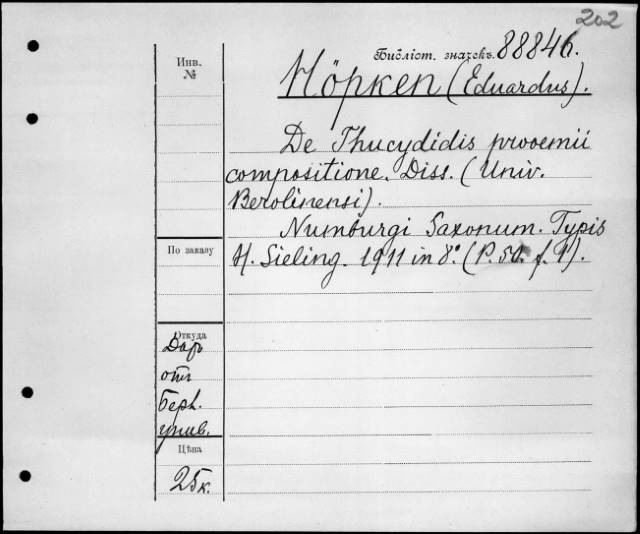 202
Библіот. значекъ 88846.
Инв.
№
Höpken (Eduardus).
De Thucydidis prooemii
compositione. Diss. (Univ.
Berolinensi).
Numburgi Saxonum. Typis
H. Sieling. 1911 in 8.° (P. 50. f. 1).
По заказу
Откуда
Даръ
отъ
Берл.
унив.
Цѣна
25 к.